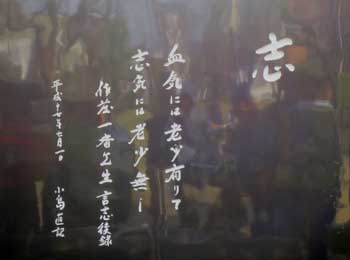 志
血気には老少有りて
志気には老少無し
佐藤一斎先生 言志後録
平成十七年六月一日
小島直記